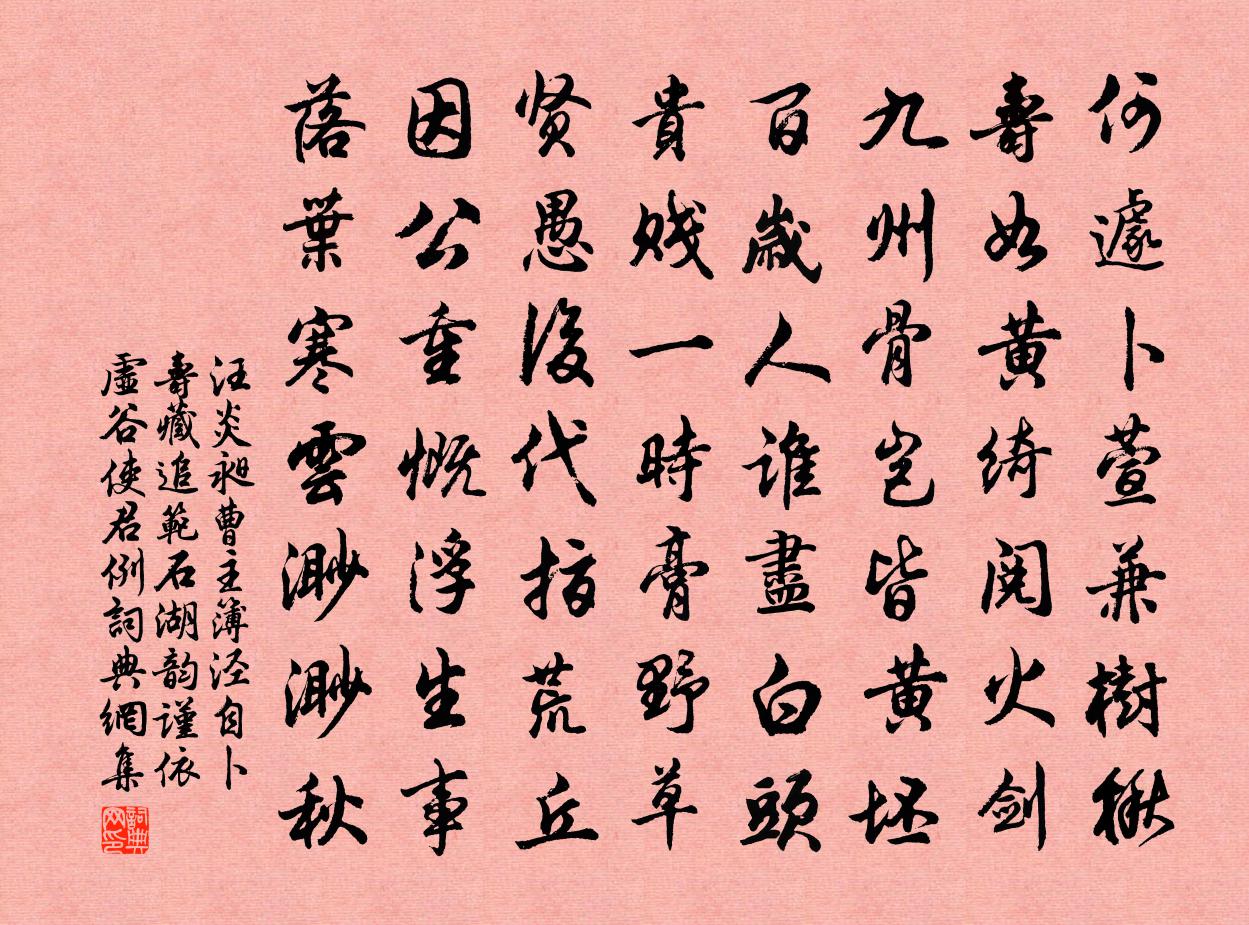 何遽卜萱兼樹楸
壽如黄綺閱火劍
九州骨豈皆黄坯
百歲人誰盡白頭
貴賤一時膏野草
贤愚後代指荒丘
因公重慨浮生事
落葉寒雲渺渺秋
汪炎昶曹主簿泾自卜
壽藏追範石湖韵謹依
虛谷使君例詞典網集
詞典网印